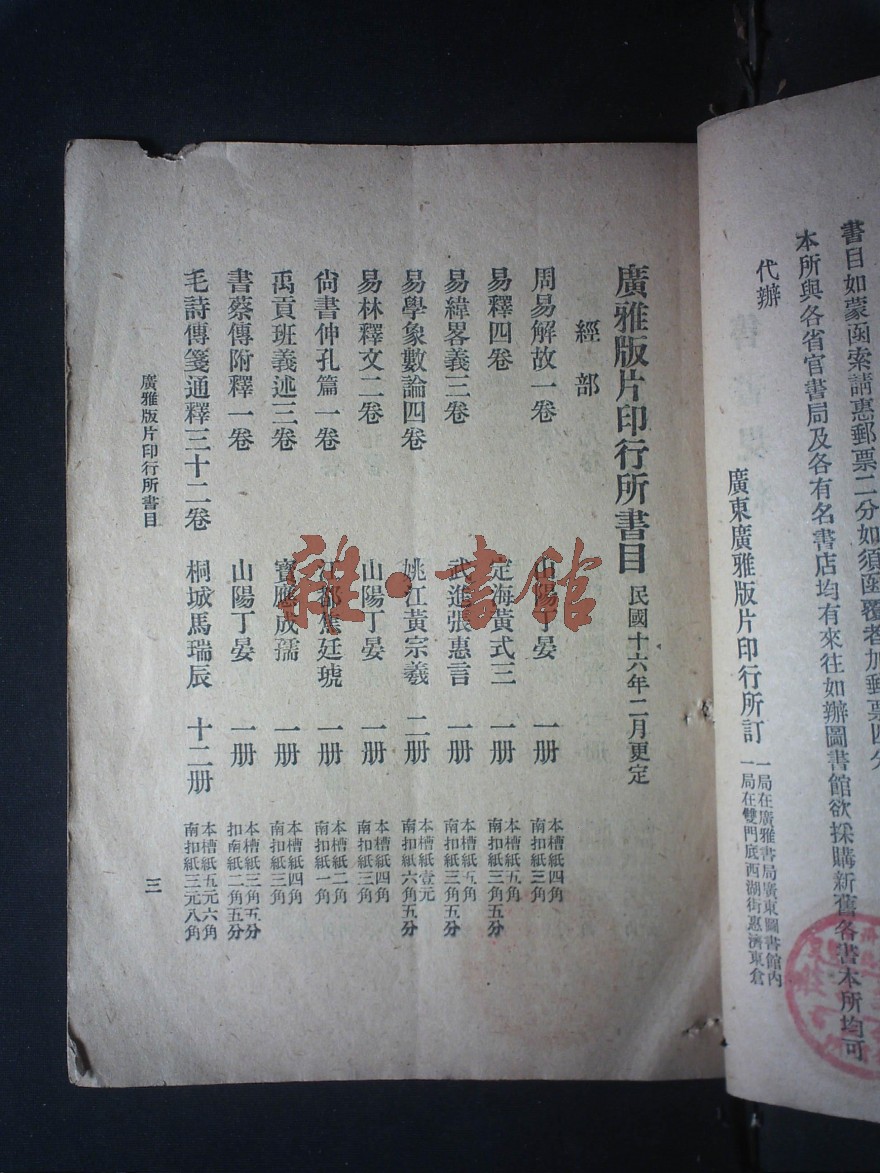 書目如蒙函索請惠郵票二分如須函覆者加郵票四分
本所與各省官書局及各有名書店均有來往如辦圖書館欲採購新舊各書本所均可
代辦
廣東廣雅版片印行所訂
一局在廣雅書局廣東圖書館內
一局在雙門底西湖街惠濟東倉
廣雅版片印行所書目 民國十六年二月更定
經部
周易解故一卷 山陽丁晏 一册 本槽紙四角 南扣紙三角
易釋四卷 定海黃式三 一册 本槽紙五角 南扣紙三角五分
易緯畧義三卷 武進張惠言 一册 本槽紙五角 南扣紙三角五分
易學象數論四卷 姚江黃宗羲 二册 本槽紙壹元 南扣紙六角五分
易林釋文二卷 山陽丁晏 一册 本槽紙四角 南扣紙三角
尙書仲孔篇一卷 江都焦廷琥 一册 本槽紙二角 南扣紙一角
禹貢班義述三卷 寶應成孺 一册 本槽紙四角 南扣紙三角
書蔡傳附釋一卷 山陽丁晏 一册 本槽紙三角五分 扣南紙二角五分
毛詩傳箋通釋三十二卷 桐城馬瑞辰 十二册 本槽紙五元六角 南扣紙三元八角
廣雅版片印行所書目
三
雜·書館